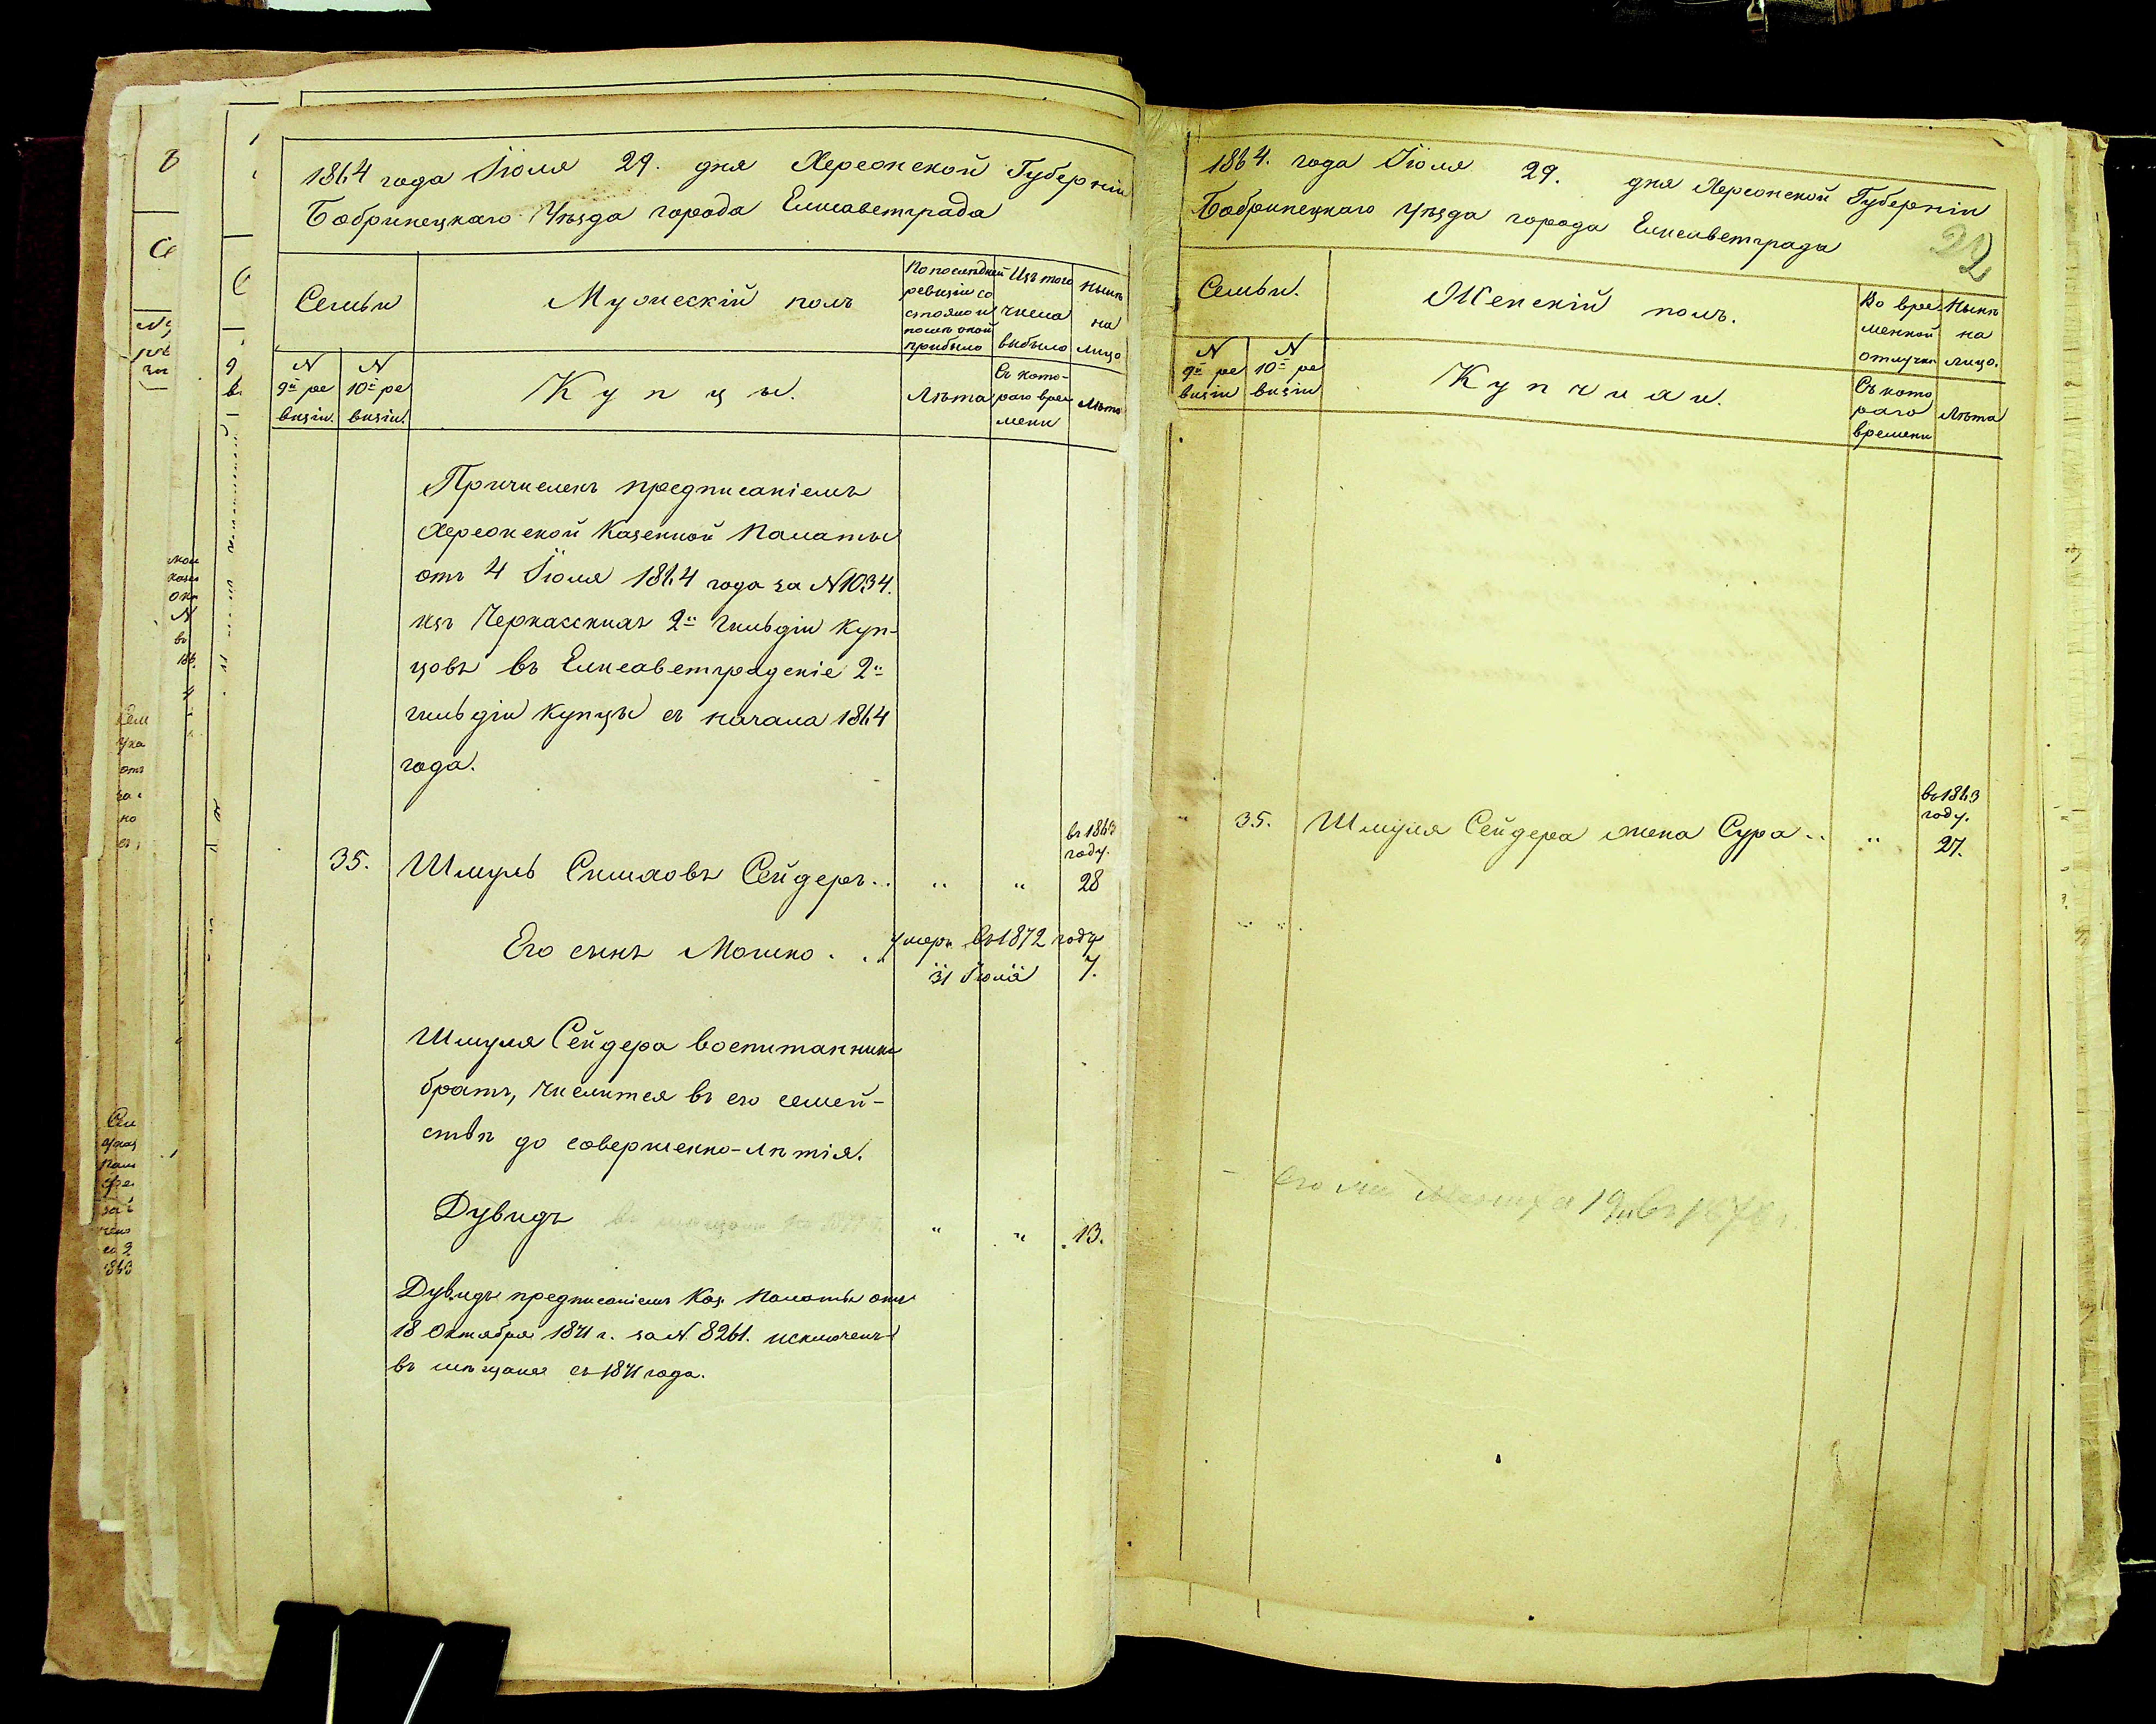 1864 года Іюля 29. дня Херсонской Губерніи
Бобринецкаго Уѣзда города Елисаветграда
Семьи
Мужескій полъ
По послѣдней
ревизіи со
стояло и
послѣ оной
прибыло
Изъ того
числа
выбыло
Нынѣ
на
лицо
N
9й ре
визіи.
N
10й ре
визіи.
Купцы.
Лѣта
Съ кото-
раго вре
мени
Лѣта
Причисленъ предписаніемъ
Херсонской Казенной Палаты
отъ 4 Іюля 1864 года за N 1034.
изъ Черкасскихъ 2й гильдіи Куп-
цовъ въ Елисаветградскіе 2й
гильдіи купцы съ начала 1864
года.
въ 1863
году.
35. Шмуль Симховъ Сейдеръ.. " " 28
Его сынъ Мошко... умеръ въ 1872 году
31 Іюля 7.
Шмуля Сейдера воспитанникъ
братъ, числится въ его семей-
ствѣ до совершенно-лѣтія.
Дувидъ " " 13.
Дувидъ предписаніемъ Каз. Палаты отъ
18 Октября 1871 г. за N. 8261. исключенъ
въ мѣщане съ 1871 года.
1864. года Іюля 29. дня Херсонской Губерніи
Бобринецкаго Уѣзда города Елисаветграда
22
Семьи.
Женскій полъ.
Во вре
менной
отлучкѣ
Нынѣ
на
лицо.
N
9й ре
визіи
N
10й ре
визіи
Купчихи.
Съ кото
раго
времени
Лѣта
въ 1863
году.
" 35. Шмуля Сейдера жена Сура.. " 27.